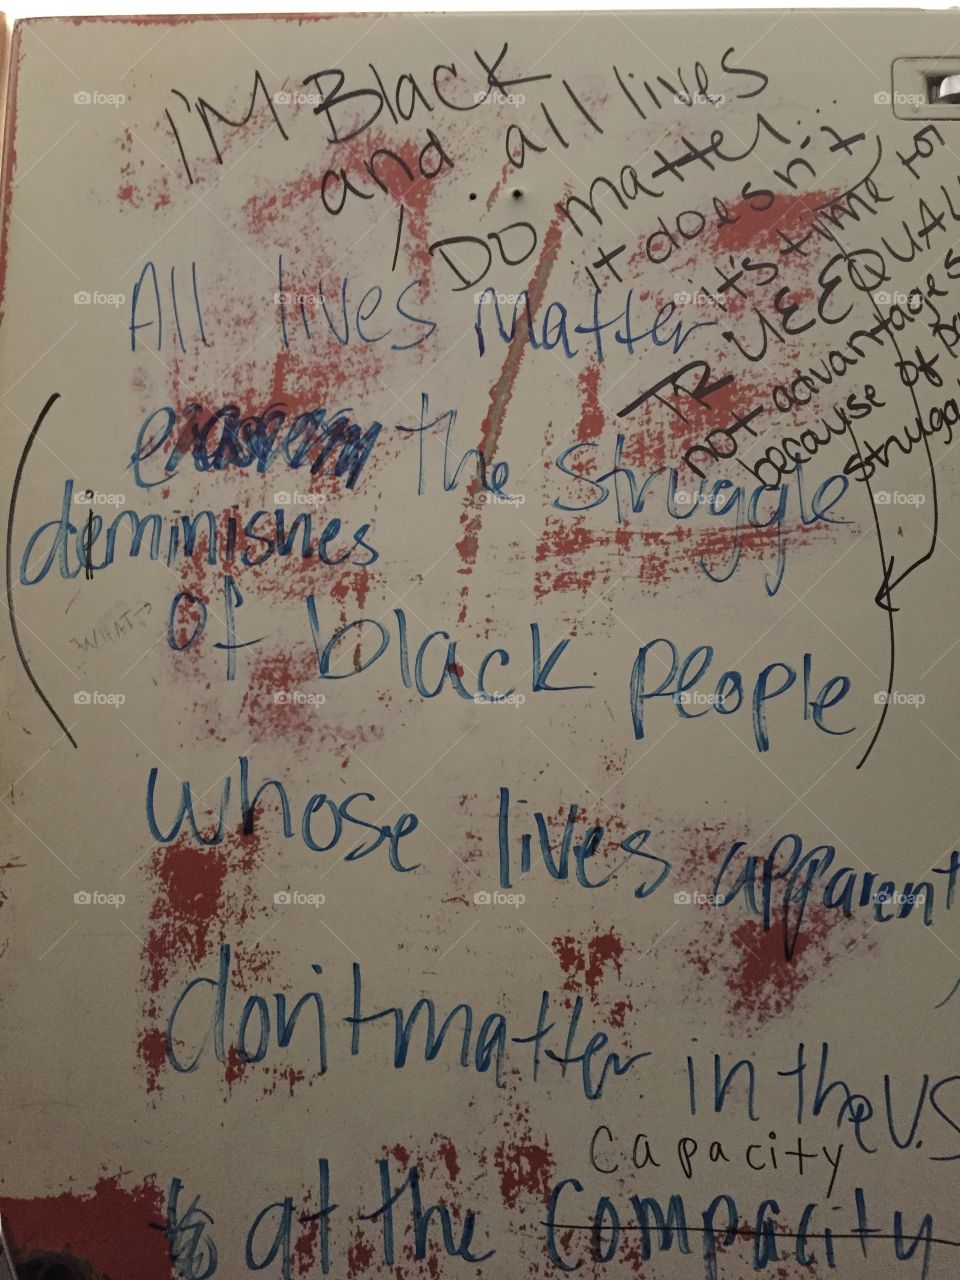 I'M Black
and all lives
DO matter.
it doesn't
it's time for
TRUE EQUAL
not advantages
because of
struggle
All lives matter
the struggle
diminishes
WHAT→
of black people
whose lives apparent
don't matter in the U.S
capacity
at the compacity